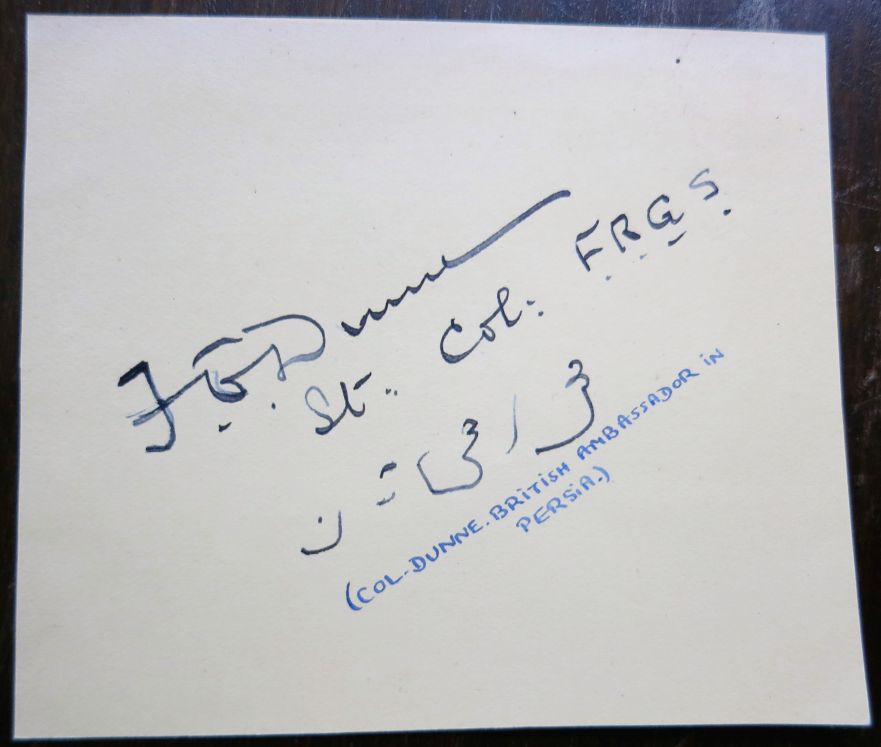 F.G.D. Dunne
Lt. Col. F.R.G.S.
(COL-DUNNE. BRITISH AMBASSADOR IN
PERSIA.)